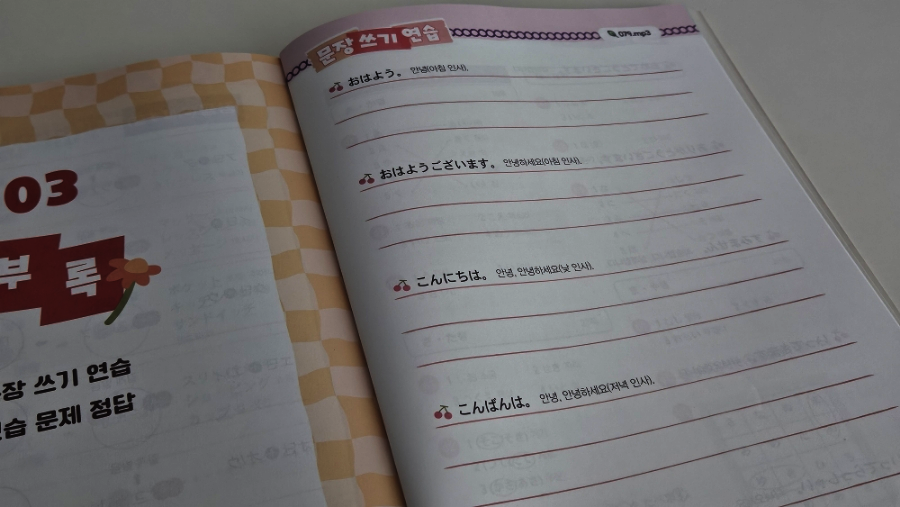 03
부록
장 쓰기 연습
습 문제 정답
문장 쓰기 연습
079.mp3
おはよう。 안녕(아침 인사).
おはようございます。 안녕하세요(아침 인사).
こんにちは。 안녕, 안녕하세요(낮 인사).
こんばんは。 안녕, 안녕하세요(저녁 인사).